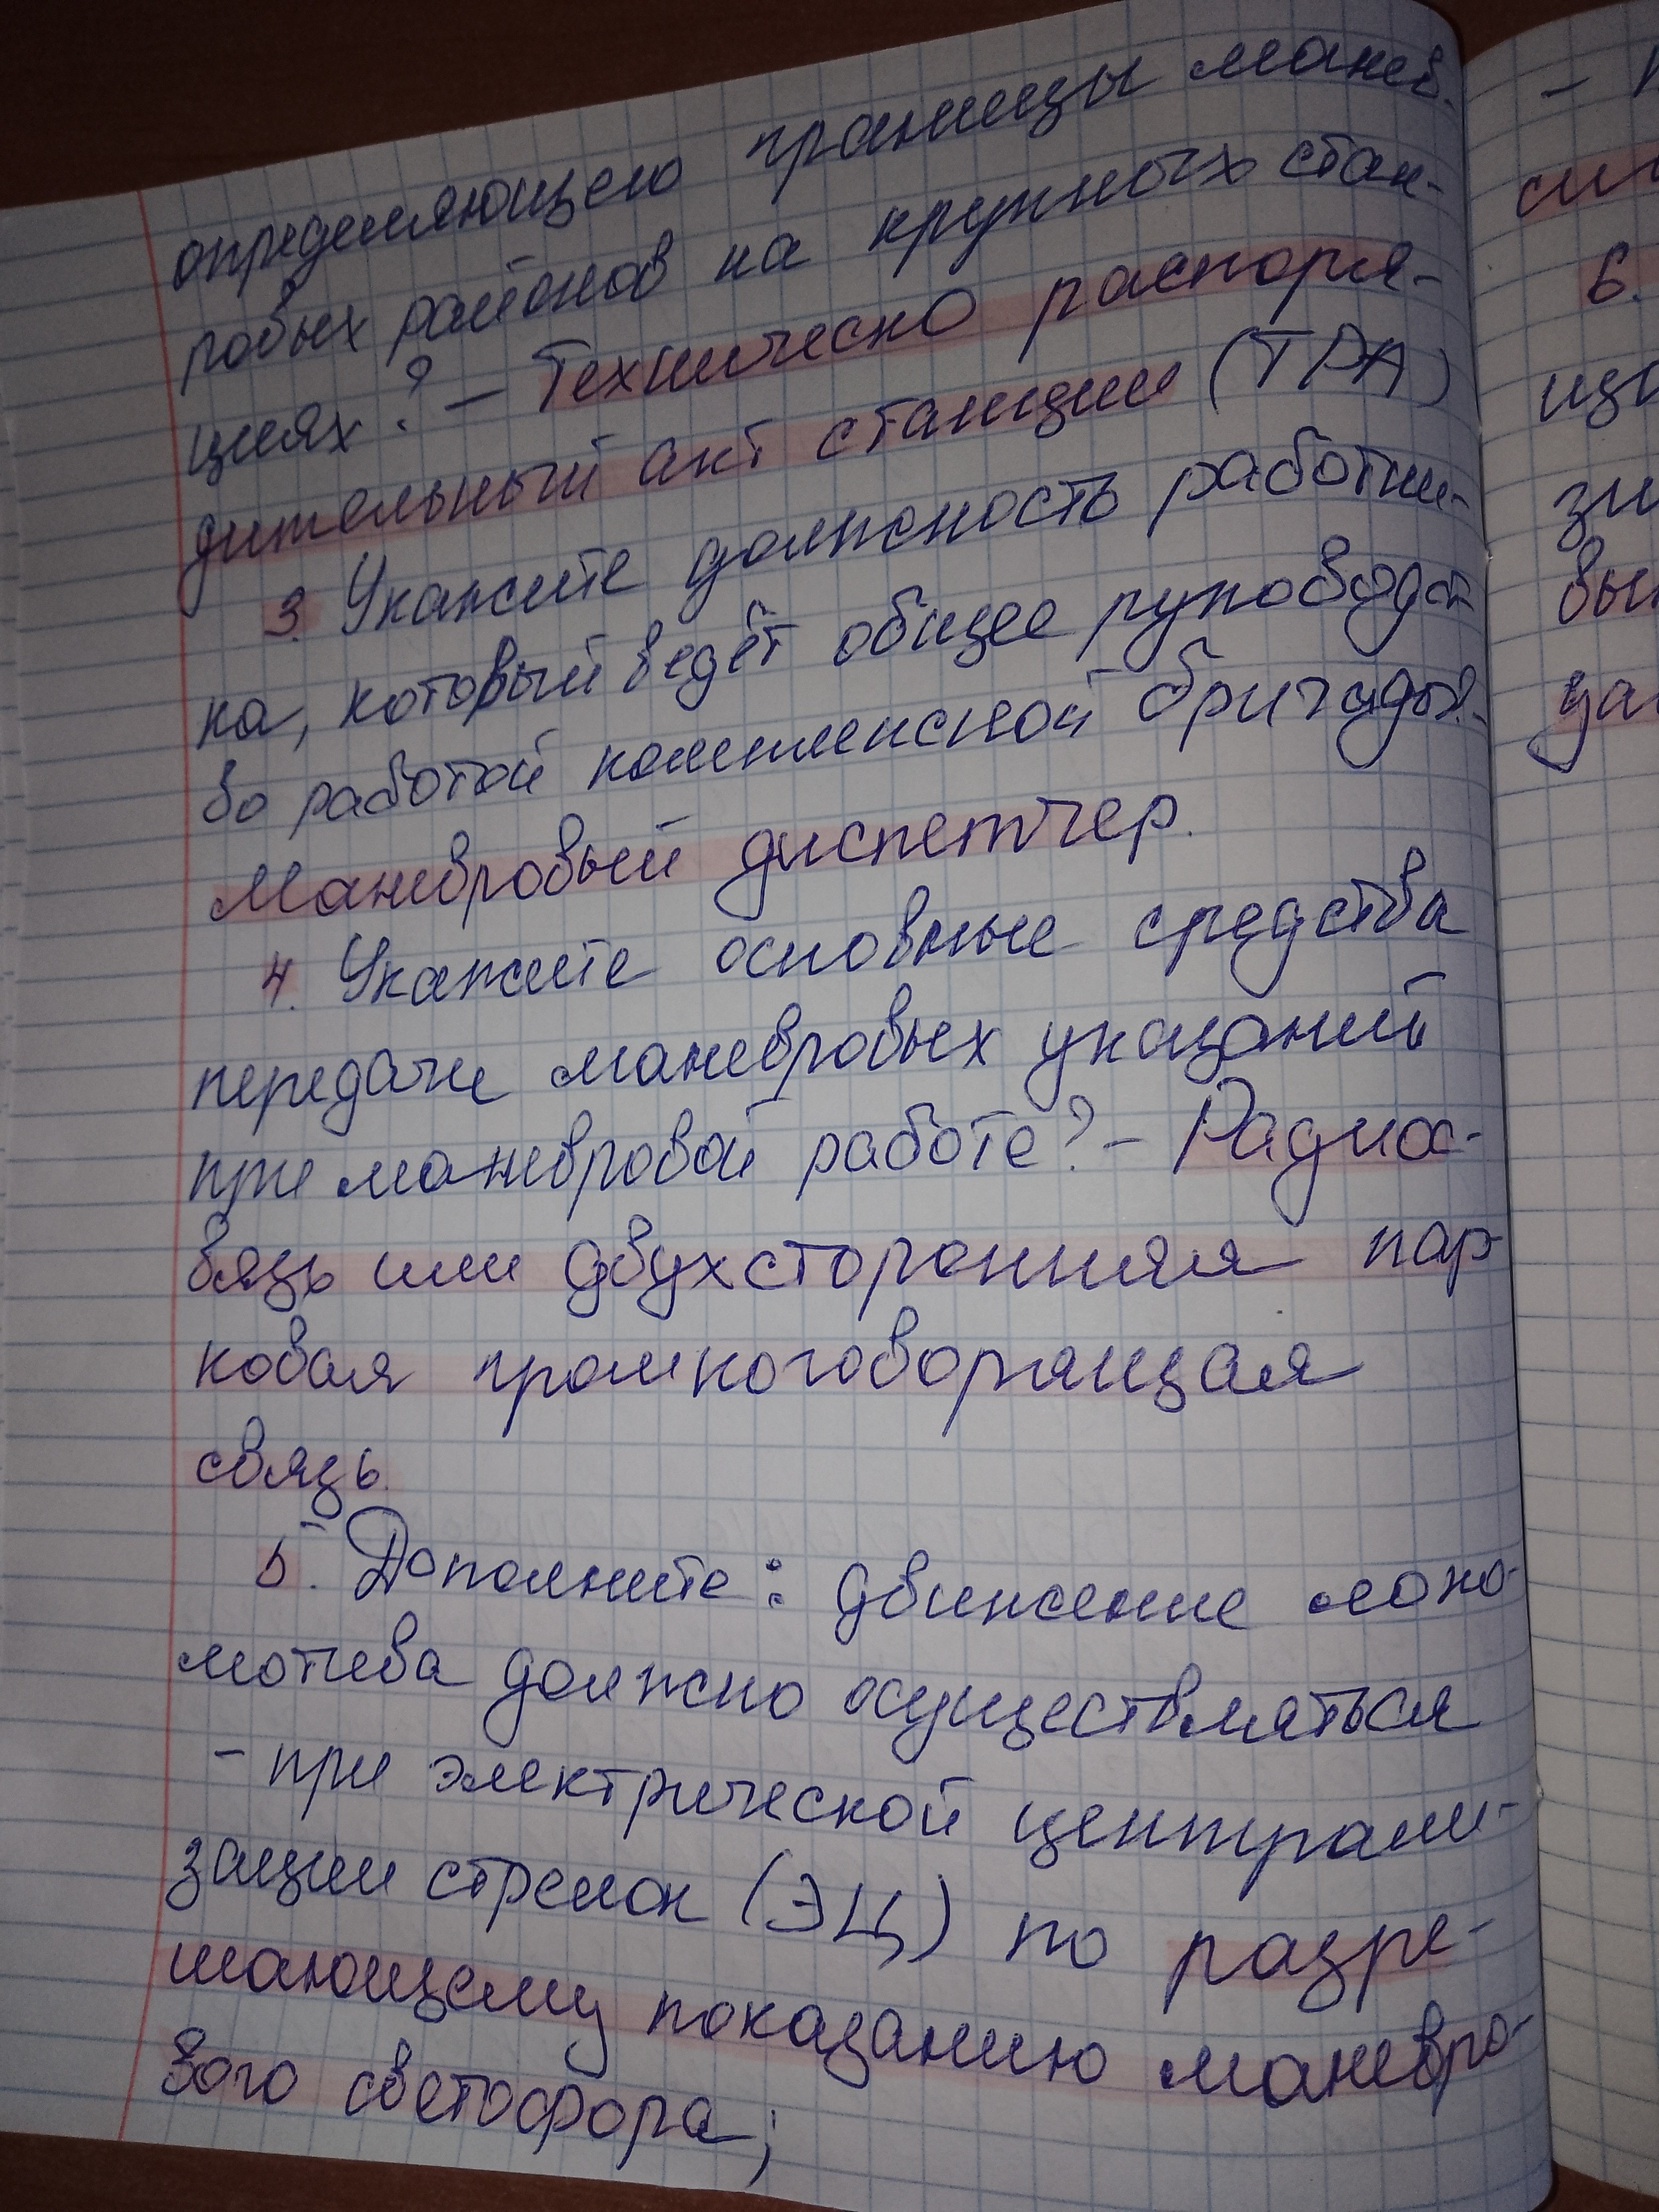 определяющего границы манев.
ровых районов на крупных стан-
циях? – Техническо распоря-
дительный акт станции (ТРА)
3. Укажите должность работни-
ка, который ведёт общее руководст
во работой комплексной бригады? -
Маневровый диспетчер.
4. Укажите основные средства
передачи маневровых указаний
при маневровой работе? – Радиос-
вязь или двухсторонняя пар-
ковая громкоговорящая
связь.
5. Дополните: движение локо-
мотива должно осуществляться
- при электрической централи-
зации стрелок (ЭЦ) по разре-
шающему показанию маневро-
вого светофора;
6.